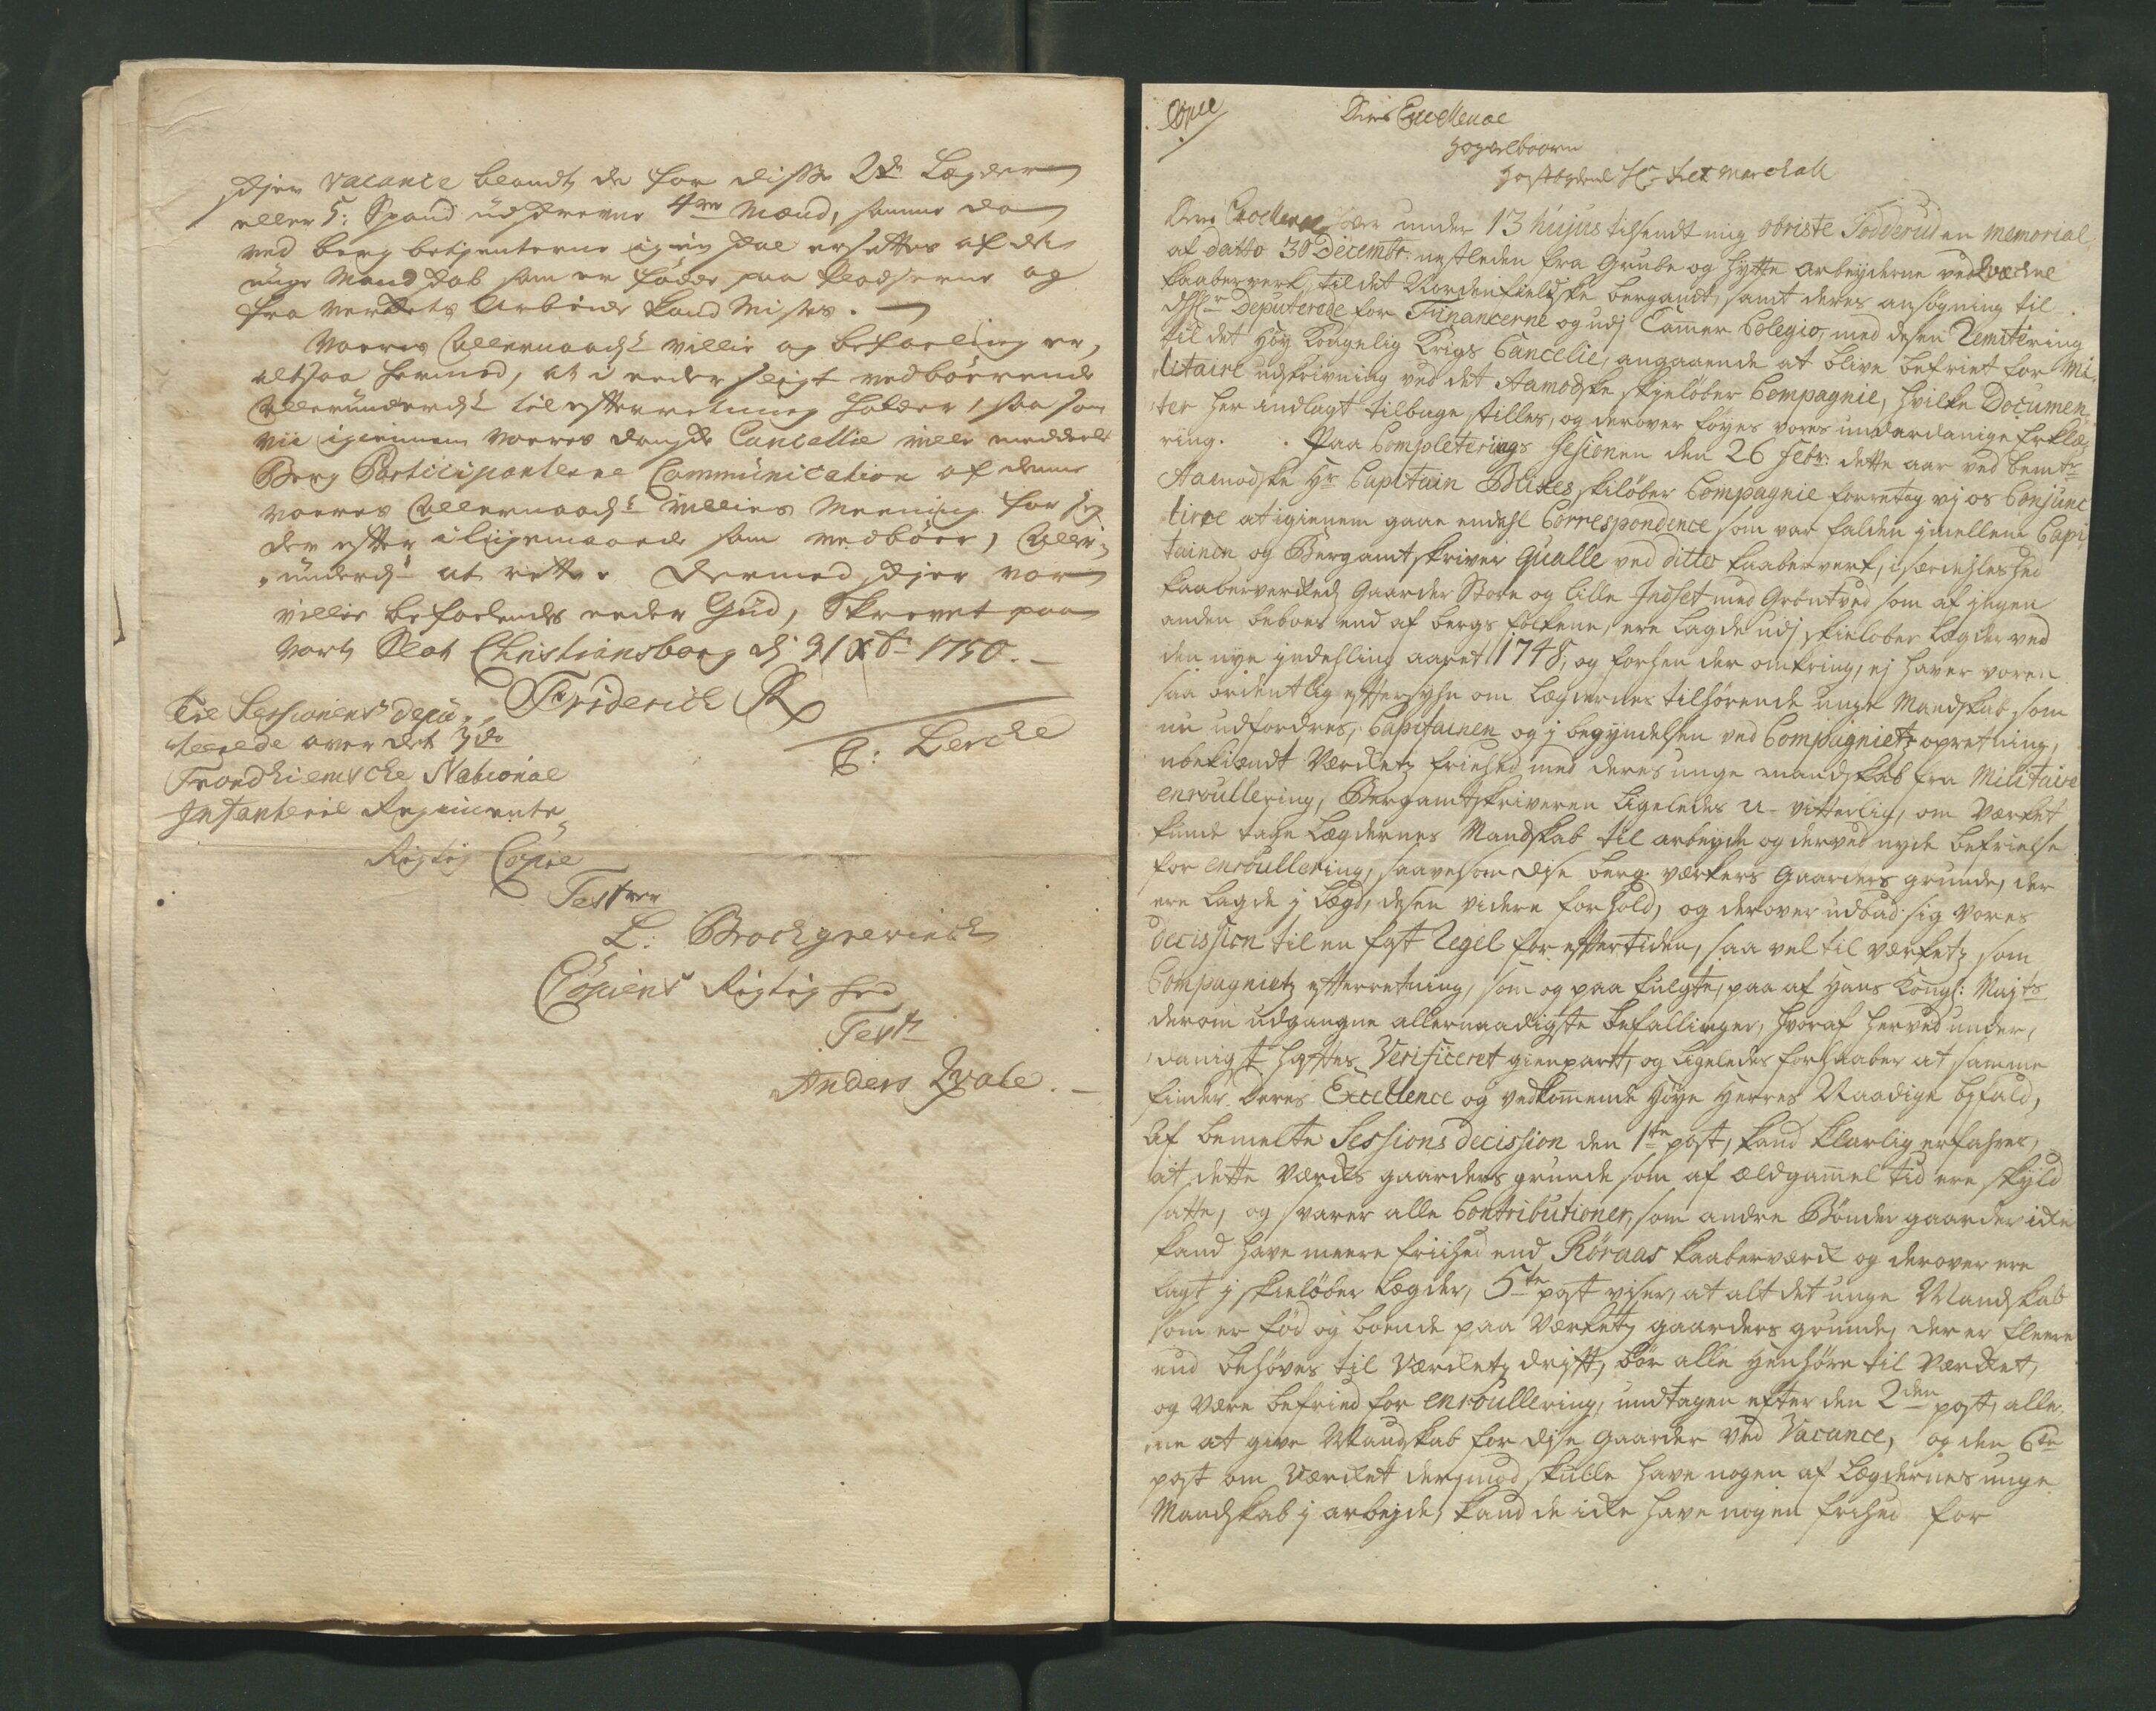 skjer vacance blandt de for disse 2de Lægder
eller 5: Spand udskrevne 4re Mænd, samme da
ved berg betjenterne igien skal ersettes af det
unge Mandskab som er fødde paa Pladserne og
fra Verkets Arbeide kand Mistes.
Voeres Allernaadst villie og befaeling er,
altsaa hermed, at i eder sligt vedbørende
Allerunderdst til efterretning holder, saa som
vii igiennem voeres danske Cancellie ville meddeele
Berg Participanterne Communication af denne
voeres Allernaadst villies Meening for sig
der efter i liigemaade som vedbør, Aller-
underdst at rette. Dermed skjer vor
villie befaelendes eeder Gud, Skrevet paa
Vort Slot Christiansborg d 31 Xbr 1750.
Friderich R
E: Lerche
Til Sessionens depu-
teerede over det 3de
Trondhiemsche National
Infanterie Regimente
Rigtig Copie
Test
L: Borchgrevinch
Copiens Rigtighed
Test
Anders Qvale.
Copie
Deris Excellence
Høyvelbaarn
Høystbydende Hr Feltmarchall
Deres Excellence har under 13 hujus tilsendt mig obriste Todderud en memorial
af datto 30 Decembr: nestleden fra Grube og Hytte arbeyderne ved Qvikne
Kaaberverk, til det Nordenfieldske bergamt, samt deres ansøgning til
Deputerede for Financerne og udj Camer Colegio, med desen Remitering
til det Høy Kongelig Krigs Cancelie, angaaende at blive befriet for Mi-
litaire udskrivning ved det Aamodske skjeløber Compagnie, hvilke Documen-
ter her indlagt tilbage stilles, og derover føyes vores underdanige Erklæ-
ring. Paa Completerings Sesionen den 26 Febr: dette aar ved bemte
Aamodske Hr Capitain Blixes skiløber Compagnie foretog vj os Conjunc
tive at igienem gaae endehl Correspondence som var falden imellem Capi
tainen og Bergamtskriver Qualle ved ditto Kaaberverk, i særdehleshed
Kaaberverkets Gaarder Store og Lille Indset med Grøntved som af ingen
anden beboes end af bergs folkene, ere Lagde udj skieløber Lægder ved
den nye indehling aaret 1748, og forhen der omkring, ej haver voren
saa ordentlig eftersyhn om Lægdernes tilhørende unge Mandskab, som
nu udfordres, Capitainen og i begyndelsen ved Compagnietz opretning,
ubekiendt Værketz friehed med deres unge mandskab fra Militaire
enroullering, Bergamtskriveren Ligeledes u-vitterlig, om Værket
kunde tage Lægdernes Mandskab til arbeyde og derved nyde befrielse
for enroullering, saavelsom dise berg værkers Gaarders grunde, der
ere Lagde j Lægd, desen videre forhold, og derover udbad sig vores
decission til en fast Regel for eftertiden, saa vel til værketz som
Compagnietz efterretning, som og paa fulgte, paa af Hans Kongl: Majts
derom udgangne allernaadigste befallinger, hvoraf herved under-
danigst heftes Verificeret gienpart, og Ligeledes forhaaber at samme
finder Deres Excellence og vedkomende Høye Herres Naadige byfald,
Af bemelte Sessions decission den 1te post, kand klarlig erfahres,
at dette Værks gaarders grunde som af ældgamel tid ere skyld
satte, og svarer alle Contributioner, som andre Bønder gaarder icke
kand have meere friehed end Röraas Kaaberværk og derover ere
Lagt j skieløber Lægder, 5te post viser, at alt det unge Mandskab
som er fød og boende paa Værketz gaarders grunde, der er fleere
end behøves til Værketz drift, bør alle Henhøre til Værket,
og være befried for enroullering, undtagen efter den 2den post, alle-
ene at give Mandskab for dise gaarder ved Vacance, og den 6te
post om Værket derjmod skulle have nogen af Lægdernes unge
Mandskab j arbejde, kand de icke have nogen frihed for